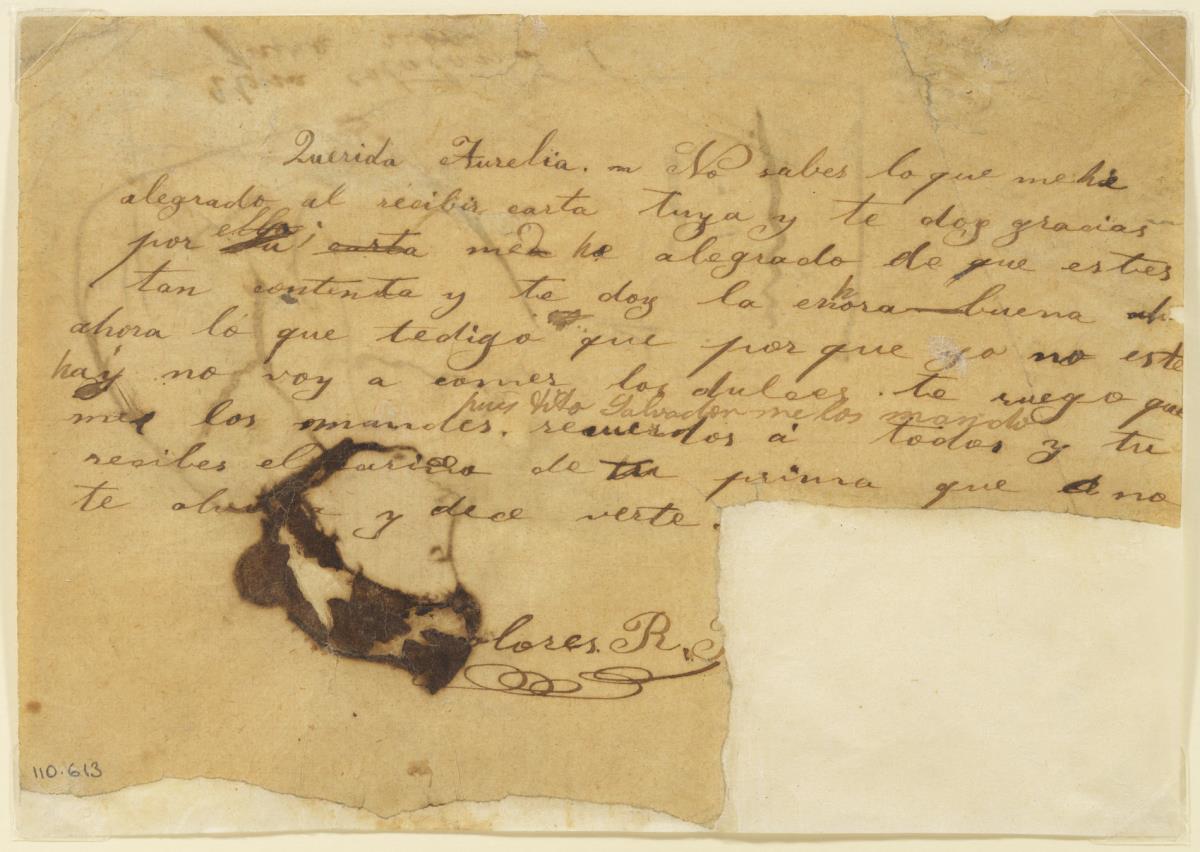 Querida Aurelia. No sabes lo que me he
alegrado al recibir carta tuya y te doy gracias
por ella; me he alegrado de que estes
tan contenta y te doy la enhorabuena
ahora lo que te digo que por que yo no este
hay no voy a comer los dulces. te ruego que
pues tito Salvador me los mando
me los mandes. recuerdos á todos y tu
recibes el cariño de tu prima que no
te olvida y decea verte.
olores. R.
110.613